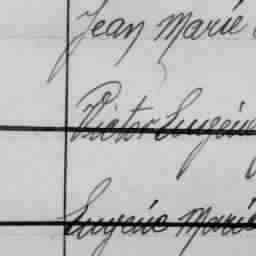 Jean Marie
Victor Eugène
Eugène Marie